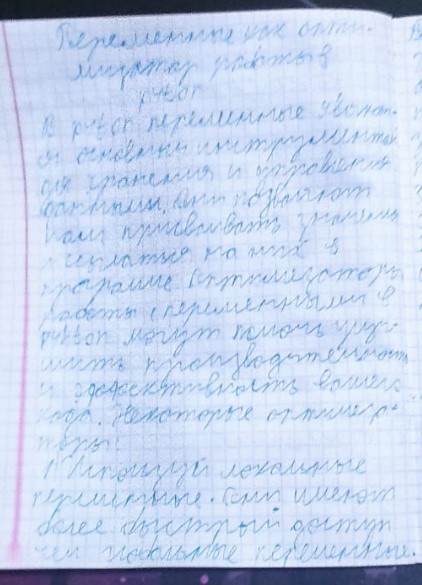 Переменные как опти-
мизатор работы в
pyton
В pyton переменные являют-
ся основным инструментом
для хранения и управления
данными. Они позволяют
нам присваивать значения
и ссылаться на них в
програме. Оптимизаторы
работы с переменными в
pyton могут помочь улуч-
шить производительность
и эффективность вашего
кода. Некоторые оптимиза-
торы:
1. Используй локальные
переменные. Они имеют
более быстрый доступ
чем глобальные переменные.